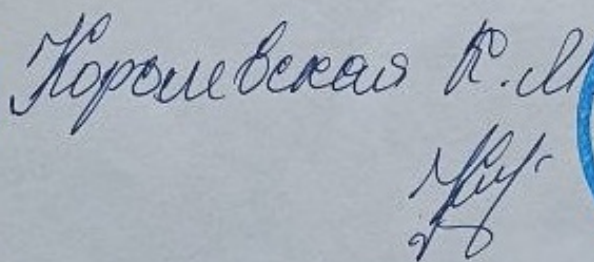 Королевская К.М